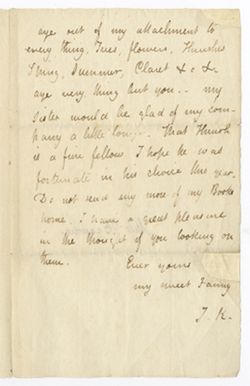 aye out of my attachment to
every thing, Trees, flowers, Thrushes
Spring, Summer, Claret &c &c
aye every thing but you.. my
sister would be glad of my com-
pany a little longer. That Thrush
is a fine fellow I hope he was
fortunate in his choice this year.
Do not send any more of my Books
home. I have a great pleasure
in the thought of you looking on
them.
Ever yours
my sweet Fanny
J. K.